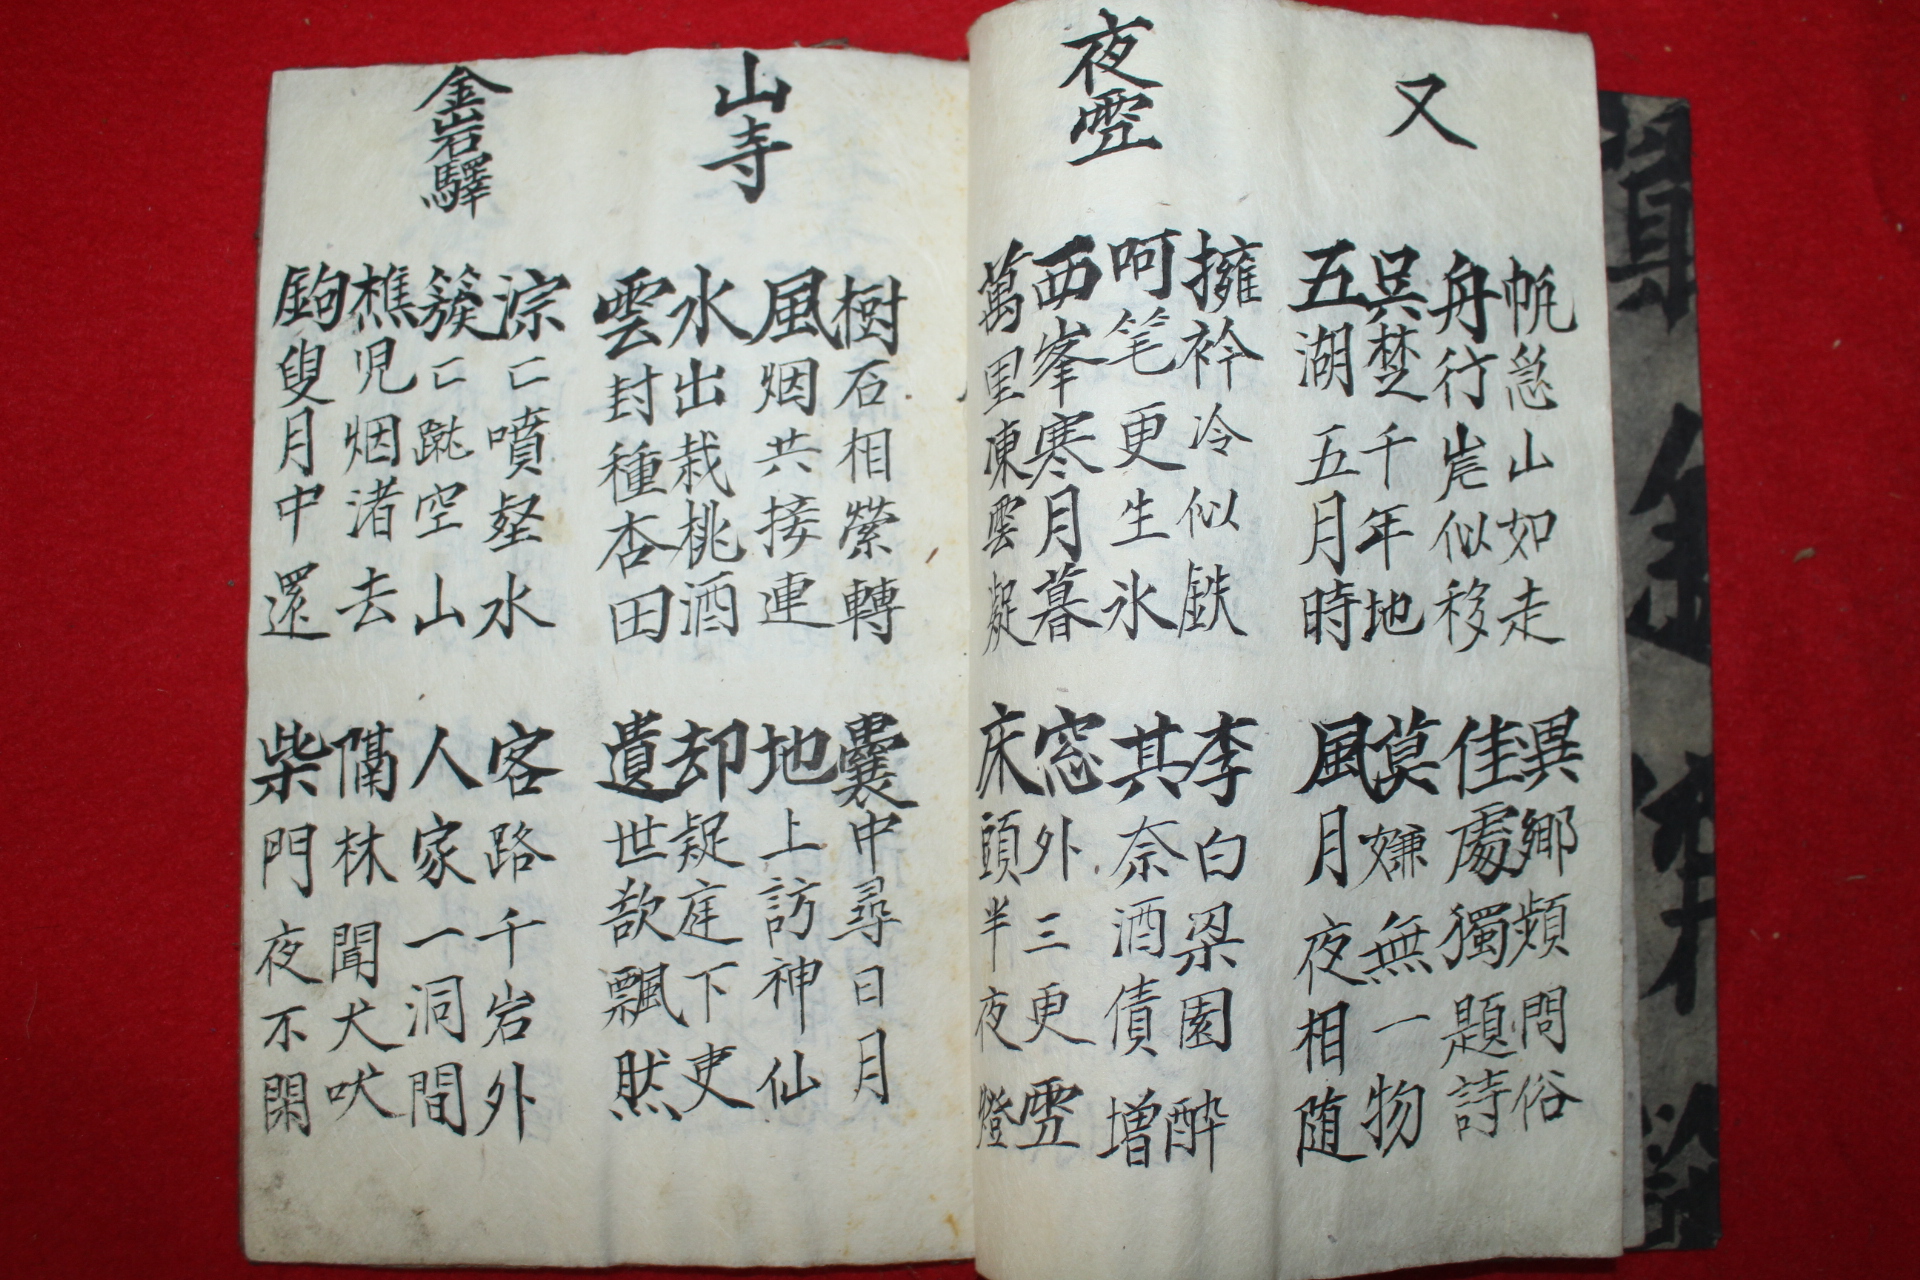 又
帆急山如走
舟行岸似移
異鄉頻問俗
佳處獨題詩
吳楚千年地
五湖五月時
莫嫌無一物
風月夜相随
夜雪
擁衿冷似鉄
呵笔更生氷
李白梁園酔
其奈酒債增
西峯寒月暮
萬里凍雲凝
窓外三更雪
床頭半夜燈
山寺
樹石相縈轉
風烟共接連
囊中尋日月
地上訪神仙
水出栽桃酒
雲封種杏田
却疑庭下吏
遺世欻飄然
金岩驛
淙匕噴壑水
簇匕蹴空山
客路千岩外
人家一洞間
樵児烟渚去
鉤叟月中還
隔林聞犬吠
柴門夜不閑